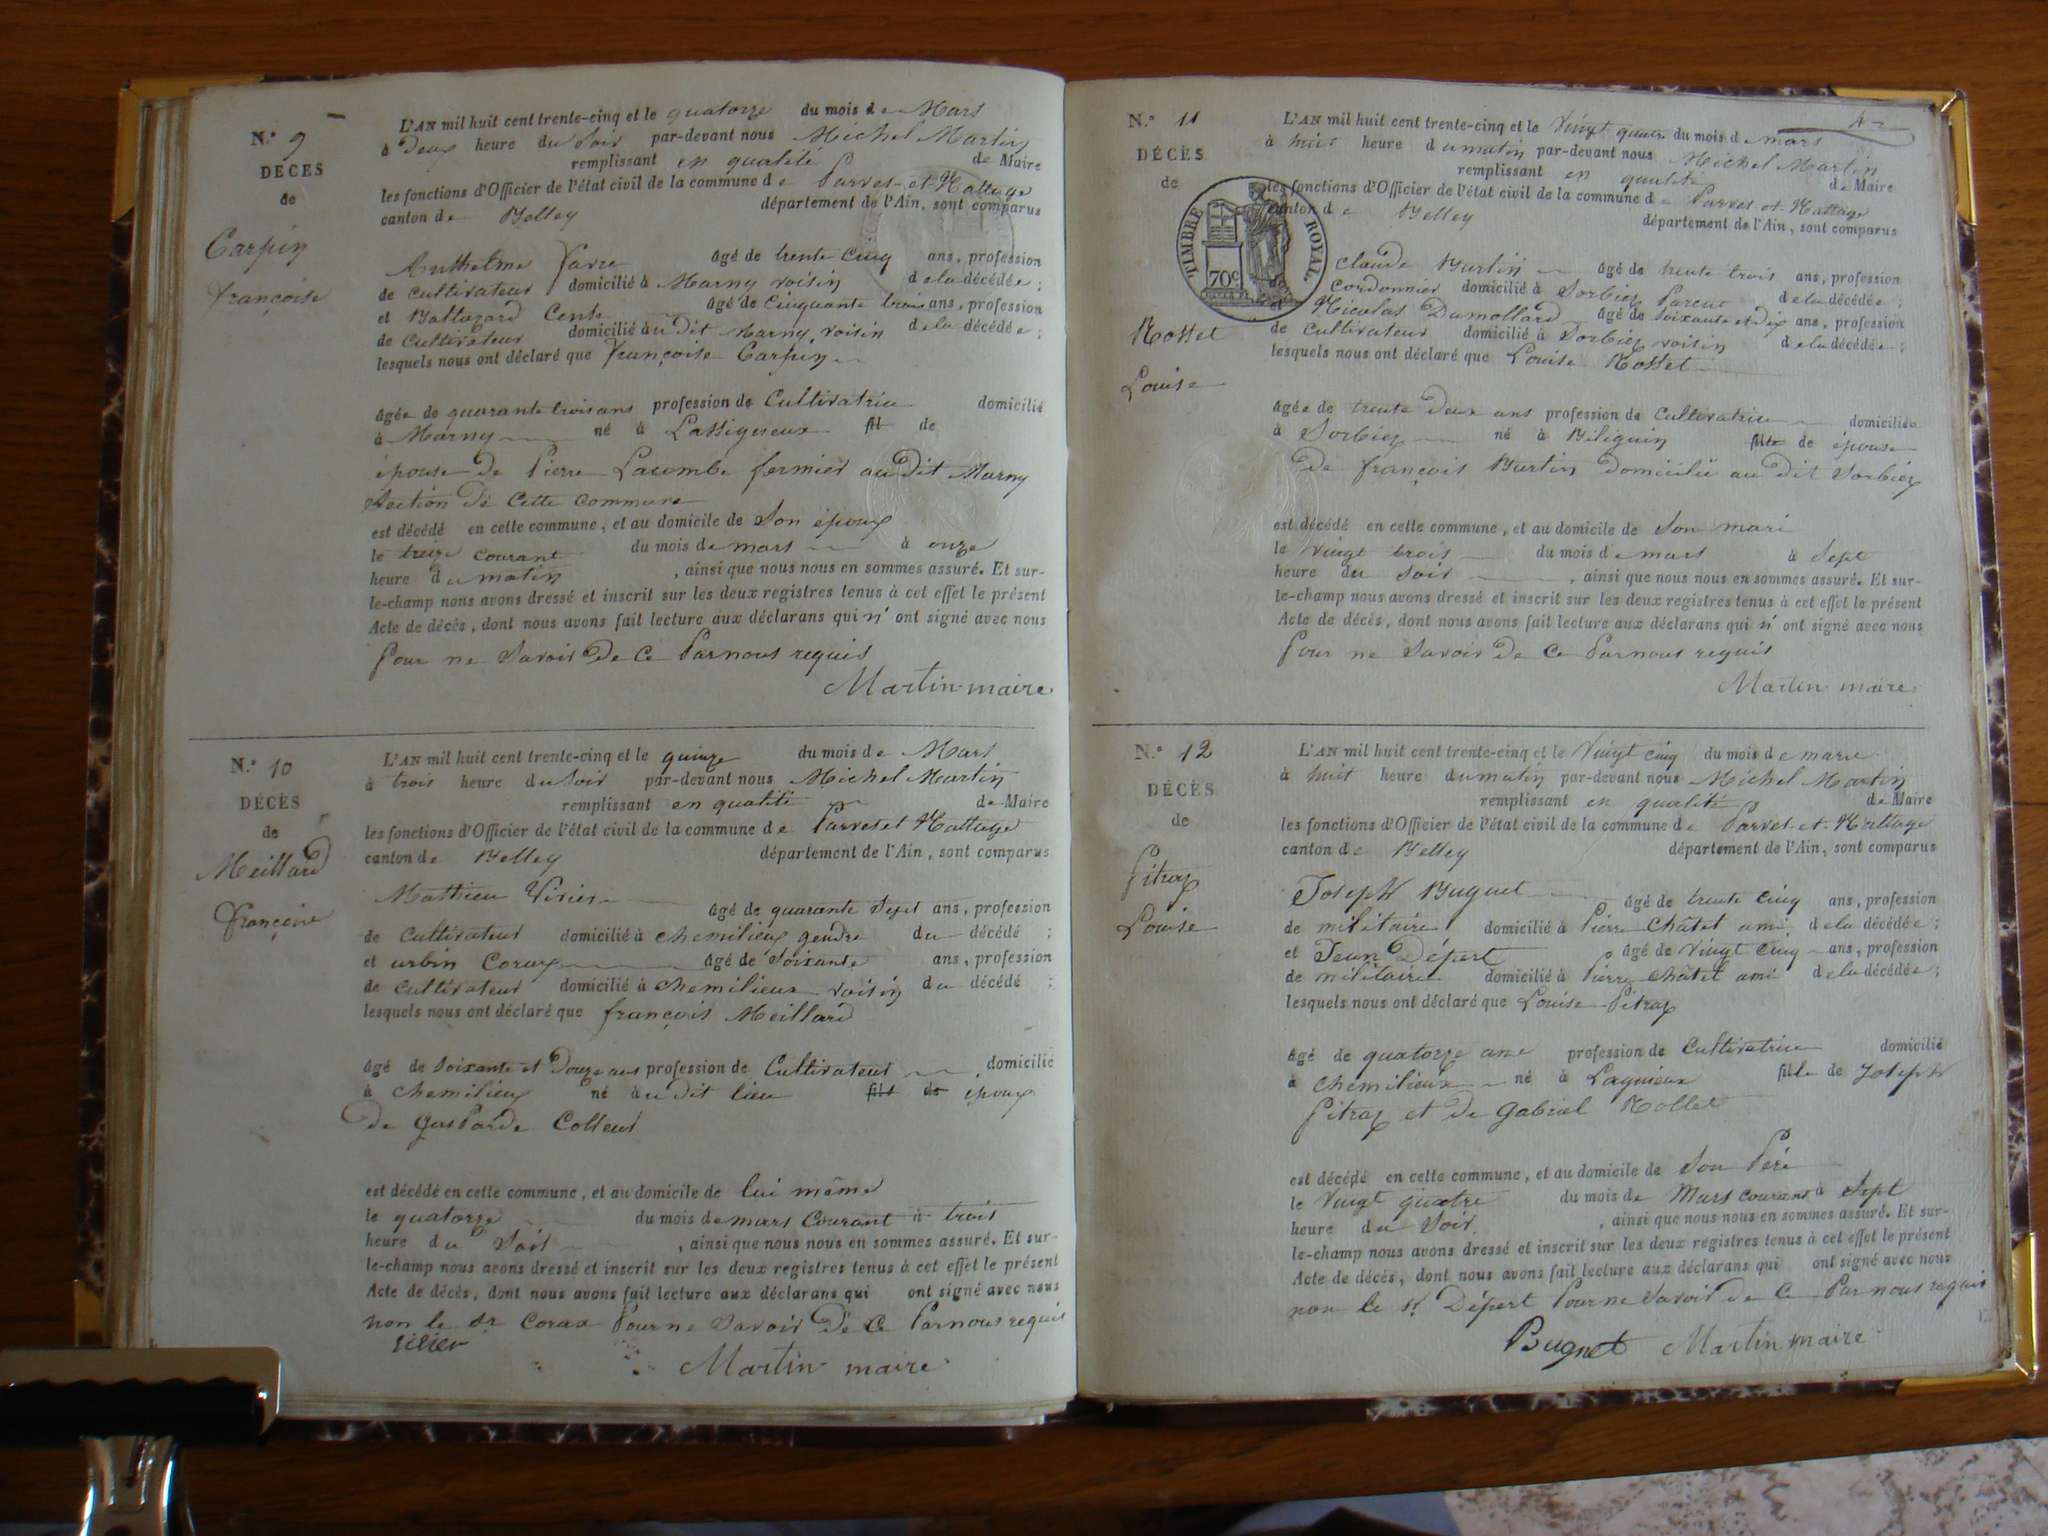 N.° 9
DÉCÈS
de
Carpin
françoise
L'AN mil huit cent trente-cinq et le quatorze du mois de Mars
à Deux heure du Soir par-devant nous Michel Martin
remplissant en qualité de Maire
les fonctions d'Officier de l'état civil de la commune de Parves-et-Nattage
canton de Belley département de l'Ain, sont comparus
Anthelme favre âgé de trente Cinq ans, profession
de cultivateur domicilié à Marny voisin de la décédée ;
et Baltazard âgé de Cinquante trois ans, profession
de Cultivateur domicilié au Dit Marny voisin de la décédée ;
lesquels nous ont déclaré que françoise Carpin
âgée de quarante trois ans profession de Cultivatrice domicilié
à Marny né à Lassignieux fil de
épouse de Pierre Lacombe fermier au Dit Marny
Section De Cette Commune
est décédé en cette commune, et au domicile de Son époux
le treize courant du mois de mars à onze
heure du matin , ainsi que nous nous en sommes assuré. Et sur-
le-champ nous avons dressé et inscrit sur les deux registres tenus à cet effet le présent
Acte de décès, dont nous avons fait lecture aux déclarans qui n' ont signé avec nous
Pour ne Savoir De Ce Par nous requis
Martin maire
N.° 10
DÉCÈS
de
Meillard
françois
L'AN mil huit cent trente-cinq et le quinze du mois de Mars
à trois heure du Soir par-devant nous Michel Martin
remplissant en qualité de Maire
les fonctions d'Officier de l'état civil de la commune de Parves et Nattage
canton de Belley département de l'Ain, sont comparus
Mathieu âgé de quarante Sept ans, profession
de Cultivateur domicilié à chemilieux gendre du décédé ;
et urbin Corax âgé de Soixante ans, profession
de Cultivateur domicilié à chemilieux voisin du décédé ;
lesquels nous ont déclaré que françois Meillard
âgé de Soixante et Douze ans profession de Cultivateur domicilié
à chemilieux né au Dit lieu fils de époux
De Gasparde Colleur
est décédé en cette commune, et au domicile de lui même
le quatorze du mois de mars Courant à trois
heure du Soir , ainsi que nous nous en sommes assuré. Et sur-
le-champ nous avons dressé et inscrit sur les deux registres tenus à cet effet le présent
Acte de décès, dont nous avons fait lecture aux déclarans qui ont signé avec nous
non le Sr Corax Pour ne Savoir De Ce Par nous requis
Martin maire
N.° 11
DÉCÈS
de
Rosset
Louise
TIMBRE ROYAL
70c
L'AN mil huit cent trente-cinq et le Vingt quatre du mois de mars
à huit heure du matin par-devant nous Michel Martin
remplissant en qualité de Maire
les fonctions d'Officier de l'état civil de la commune de Parves et Nattage
canton de Belley département de l'Ain, sont comparus
Claude Burtin âgé de trente trois ans, profession
cordonnier domicilié à Sorbier Parent de la décédée ;
et Nicolas Dumollard âgé de Soixante et Dix ans, profession
de Cultivateur domicilié à Sorbier voisin de la décédée ;
lesquels nous ont déclaré que Louise Rosset
âgée de trente Deux ans profession de Cultivatrice domiciliée
à Sorbier né à Billiguin fille de épouse
De françois Burtin Domicilié au Dit Sorbier
est décédé en cette commune, et au domicile de Son mari
le vingt trois du mois de mars à Sept
heure du Soir , ainsi que nous nous en sommes assuré. Et sur-
le-champ nous avons dressé et inscrit sur les deux registres tenus à cet effet le présent
Acte de décès, dont nous avons fait lecture aux déclarans qui n' ont signé avec nous
Pour ne Savoir De Ce Par nous requis
Martin maire
N.° 12
DÉCÈS
de
Pitrax
Louise
L'AN mil huit cent trente-cinq et le Vingt Cinq du mois de mars
à huit heure du matin par-devant nous Michel Martin
remplissant en qualité de Maire
les fonctions d'Officier de l'état civil de la commune de Parves-et-Nattage
canton de Belley département de l'Ain, sont comparus
Joseph Bugnet âgé de trente Cinq ans, profession
de militaire domicilié à Pierre Châtel ami de la décédée ;
et Jean Dépert âgé de Vingt Cinq ans, profession
de militaire domicilié à Pierre Châtel ami de la décédée ;
lesquels nous ont déclaré que Louise Pitrax
âgé de quatorze ans profession de Cultivatrice domicilié
à Chemilieux né à Lagnieux fille de Joseph
Pitrax et De Gabriel Rollet
est décédé en cette commune, et au domicile de Son Père
le Vingt quatre du mois de Mars courant à Sept
heure du Soir , ainsi que nous nous en sommes assuré. Et sur-
le-champ nous avons dressé et inscrit sur les deux registres tenus à cet effet le présent
Acte de décès, dont nous avons fait lecture aux déclarans qui ont signé avec nous
non le Sr Dépert Pour ne Savoir De Ce Par nous requis
Bugnet Martin maire